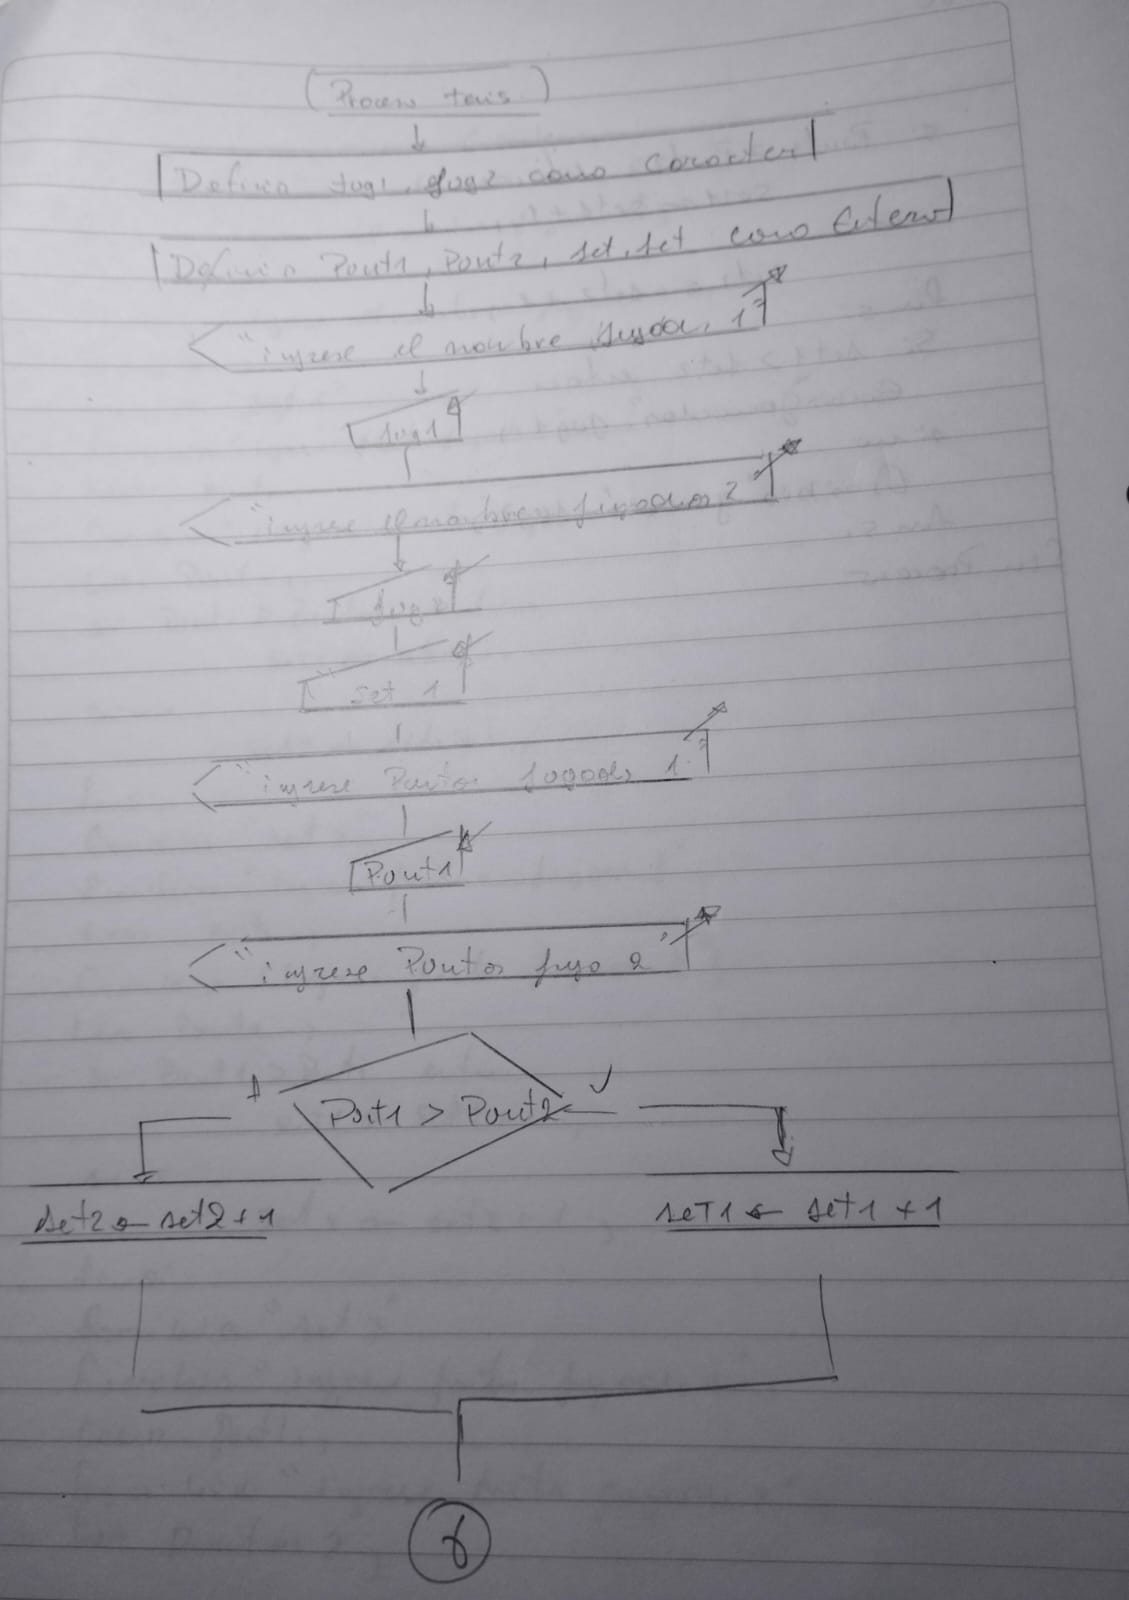 Proceso tenis
Definir Jug1, Jug2 como Caracter
Definir Pont1, Pont2, set, set como Entero
"ingrese el nombre Jugador 1"
Jug1
"ingrese el nombre Jugador 2
Jug2
"set 1
"ingrese Puntos Jugador 1"
Pont1
"ingrese Puntos jugo 2"
Pont1 > Pont2
set2 ← set2 + 1
set1 ← set1 + 1